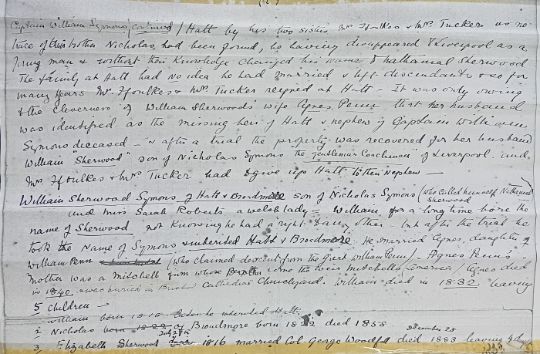 Captain William Symons continued / Hatt by his two sisters Mrs Ffoulkes & Mrs Tucker as no
trace of this brother Nicholas had been found, he having disappeared to Liverpool as a
young man & without their knowledge changed his name to Nathanial Sherwood
The family at Hatt had no idea he had married & left descendants & so for
many years Mrs Ffoulkes & Mrs Tucker reigned at Hatt – It was only owing
to the cleverness of William Sherwoods' wife Agnes Penn that her husband
was identified as the missing heir of Hatt & nephew of Captain William
Symons deceased – & after a trial the property was recovered for her husband
William "Sherwood" son of Nicholas Symons the gentleman Coachman of Liverpool and
Mrs Ffoulkes & Mrs Tucker had to give up Hatt to their Nephew –
William Sherwood Symons of Hatt & Broadmore son of Nicholas Symons (who called himself Nathanial
Sherwood
and Miss Sarah Roberts a welsh lady = William for a long time bore the
name of Sherwood not knowing he had a right to any other – but after the trial he
took the Name of Symons & inherited Hatt & Broadmore. He married Agnes, daughter of
William Penn (who claimed descent from the great William Penn). Agnes Penns'
mother was a Mitchell from whose Brother came the Mitchells / Agnes died
in 1840 & was buried in Cathedral Churchyard. William died in 1832 leaving
5 children –
1 William born 1810 he inherited Hatt
2 Nicholas born of Broadmore born 1822 died 1855
3 Elizabeth Sherwood 1816 married Col George Woodfall died 1883 leaving
December 23